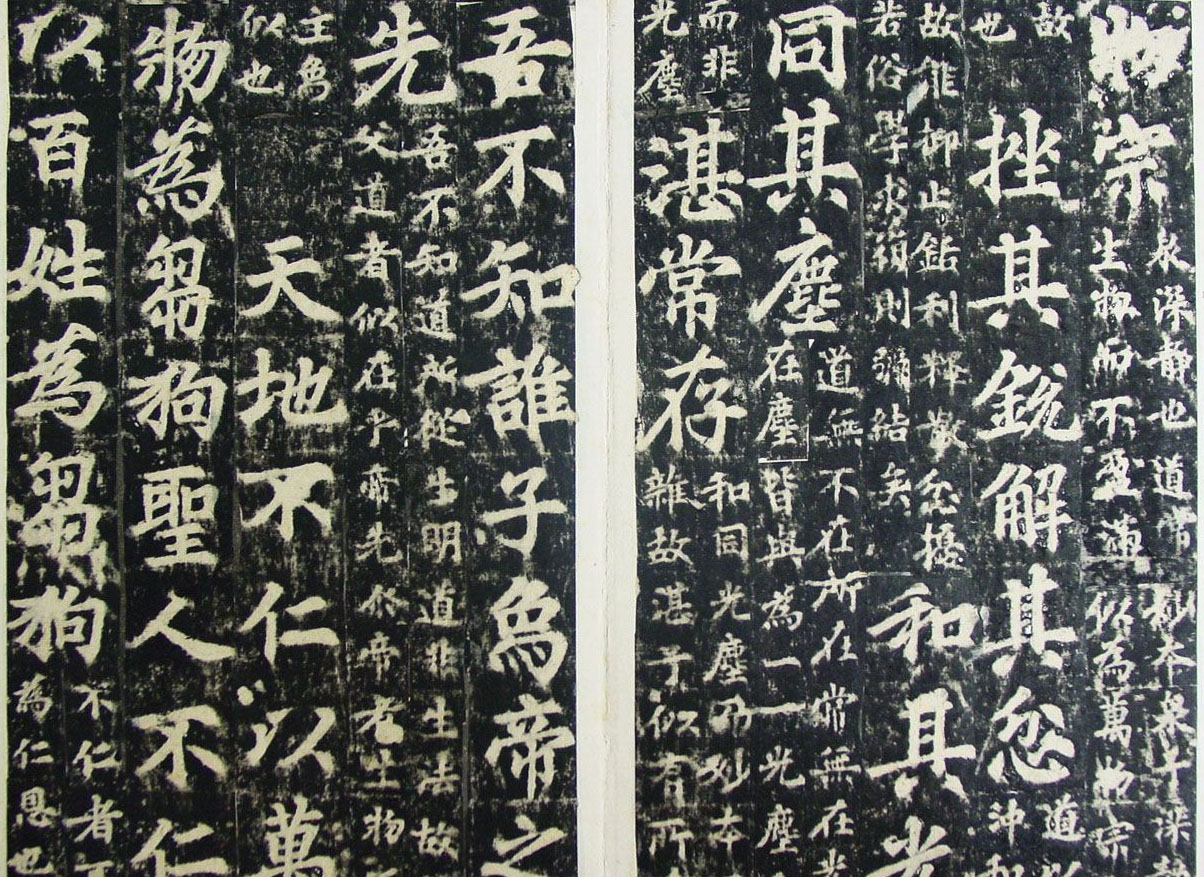 物宗 泉深靜也道常 生 而不盈滿 妙本泉乎深 似為萬物宗
故 也 挫其銳解其忿 道以 沖和
故能抑止銛利釋散忿擾 若俗學求 則彌結矣 和其光
同其塵 道無不在所在常無在光 在塵皆與為一一光塵
而非 光塵 湛常存 和同光塵而妙本 雜故湛 似有所
吾不知誰子象帝之
先 吾不知道所從生明道非生法故 父道者似在乎帝先 帝者生物
主象 似也 天地不仁以萬
物為芻狗聖人不仁
以百姓為芻狗 不仁者 為仁恩也